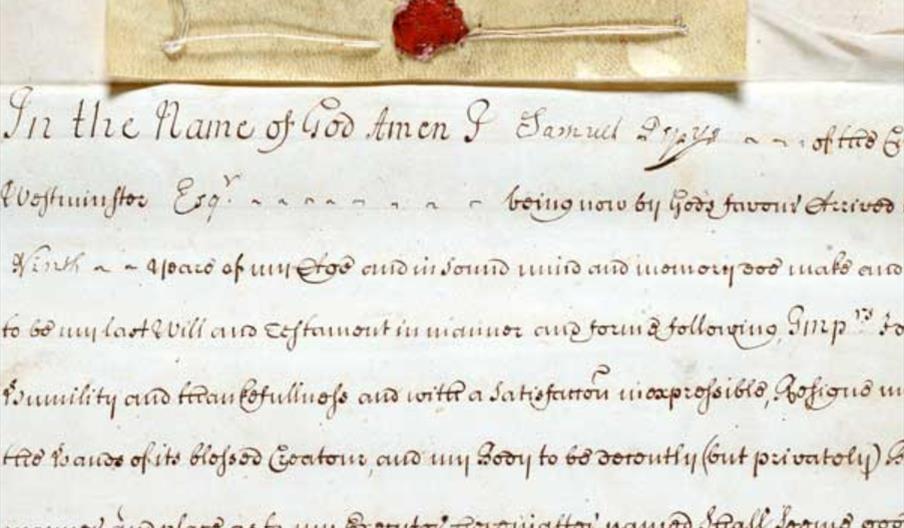 In the Name of God Amen I Samuel Pepys of the
Westminster Esqr. being now by Gods favour Arrived
Ninth years of my Age and in sound mind and memory doe make and
to be my last Will and Testament in manner and forme following, Imprs
Humility and thankefullness and with a satisfaccon inexpressible, Resigne
the hands of its blessed Creatour, and my Body to be decently (but privately)
and place as to my Executor hereinafter named shall seeme